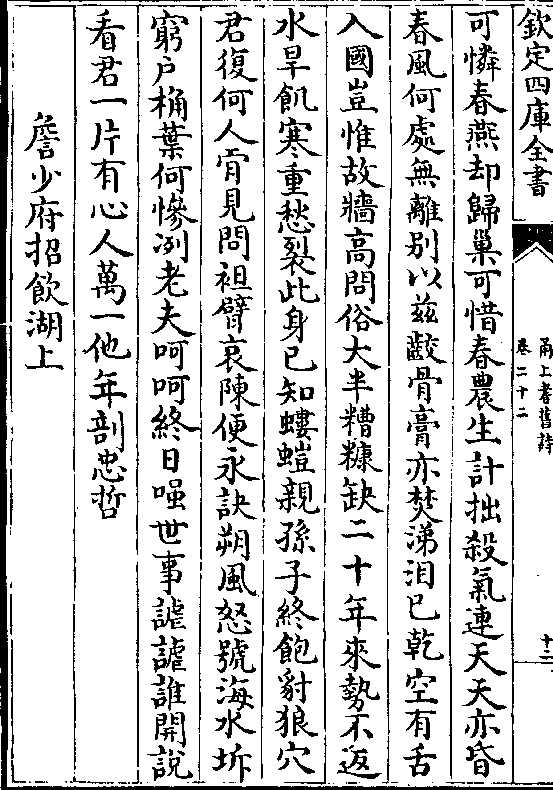 欽定四庫全書
甬上耆舊詩
卷二十二
十二
可憐春燕却歸巢可惜春農生計拙殺氣連天天亦昏
春風何處無離別以茲齩骨膏亦焚涕泪已乾空有舌
入國豈惟故牆高問俗大半糟糠缺二十年來勢不返
水旱飢寒重愁裂此身已知螻螘親孫子終飽豺狼穴
君復何人肯見問袒臂哀陳便永訣朔風怒號海水坼
窮户桷葉何慘冽老夫呵呵終日嗤世事謔謔誰開說
看君一片有心人萬一他年剖忠哲
詹少府招飲湖上